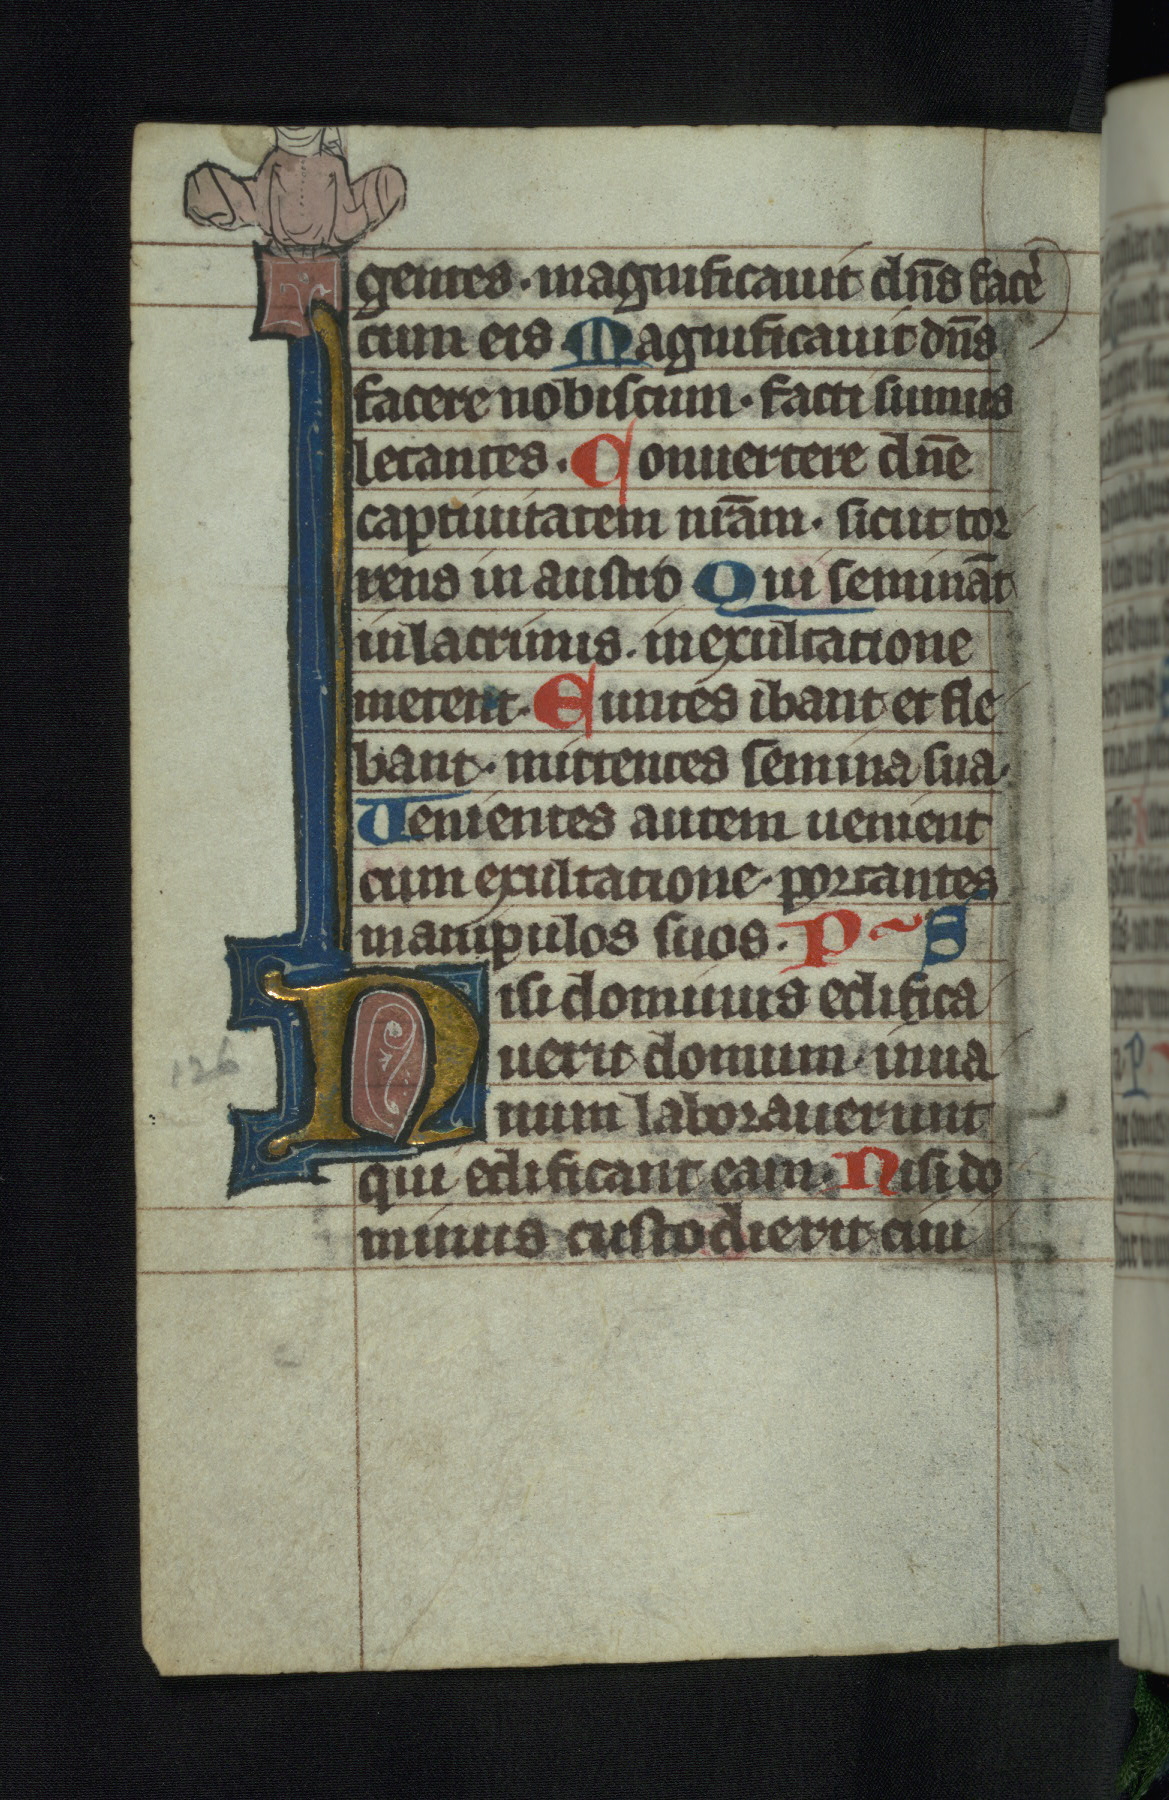 gentes · magnificauit dn̄s facẽ
cum eis Magnificauit dn̄s
facere nobiscum · facti sumus
letantes · Conuertere dn̄e
captiuitatem nr̄am · sicut tor
rens in austro Qui semināt
in lacrimis · in exultatione
metent · Euntes ibant et fle
bant · mittentes semina sua ·
Uenientes autem uenient
cum exultatione · portantes
manipulos suos · P~S
Nisi dominus edifica
uerit domum · inua
126
num laborauerunt
qui edificant eam · Nisi do
minus custodierit ciui